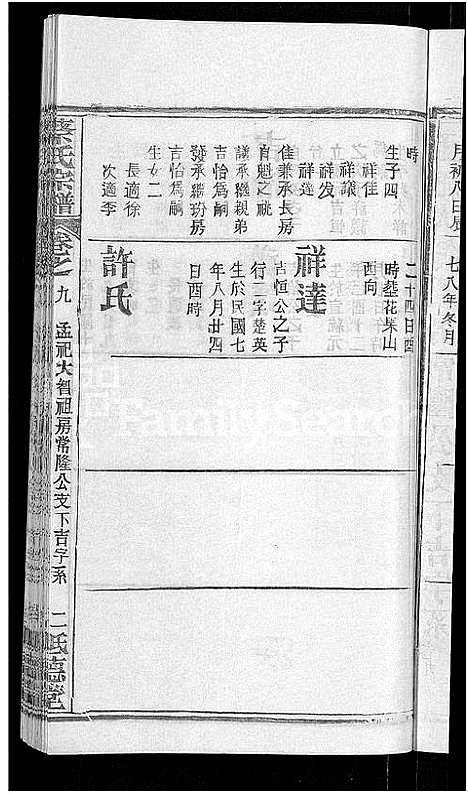 月初八日辰
七八年冬月
時
生子四
祥佳
祥讓
祥发
祥達
佳兼承長房
自魁之祧
議承繼親弟
吉怡爲嗣
發承繼玢房
吉怡爲嗣
生女二
長適徐
次適李
二十四日酉
時塟花果山
酉向
祥達
吉恒公之子
行二字楚英
生於民國七
年八月廿四
日酉時
許氏
蔡氏宗譜
卷之九
孟祀大智祖房常隆公支下吉字系
二
FamilySearch